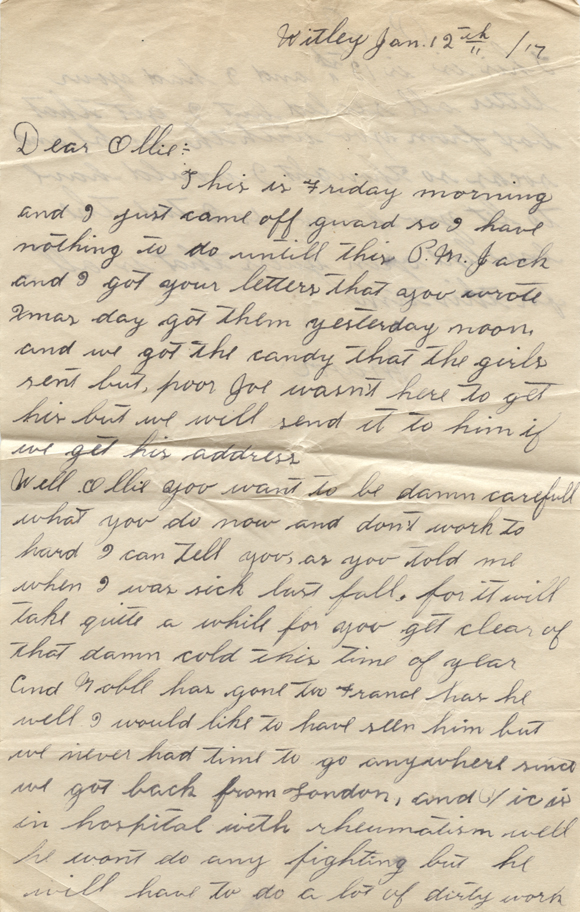 Witley Jan. 12th /17
Dear Ollie:
This is Friday morning
and I just came off guard so I have
nothing to do untill this P.M. Jack
and I got your letters that you wrote
Xmas day got them yesterday noon.
and we got the candy that the girls
sent but, poor Joe wasn't here to get
his but we will send it to him if
we get his address
Well Ollie you want to be damn carefull
what you do now and don't work to
hard I can tell you, as you told me
when I was sick last fall. for it will
take quite a while for you get clear of
that damn cold this time of year
and Noble has gone to France has he
well I would like to have seen him but
we never had time to go anywhere since
we got back from London, and Vic is
in hospital with rheumatism well
he wont do any fighting but he
will have to do a lot of dirty work